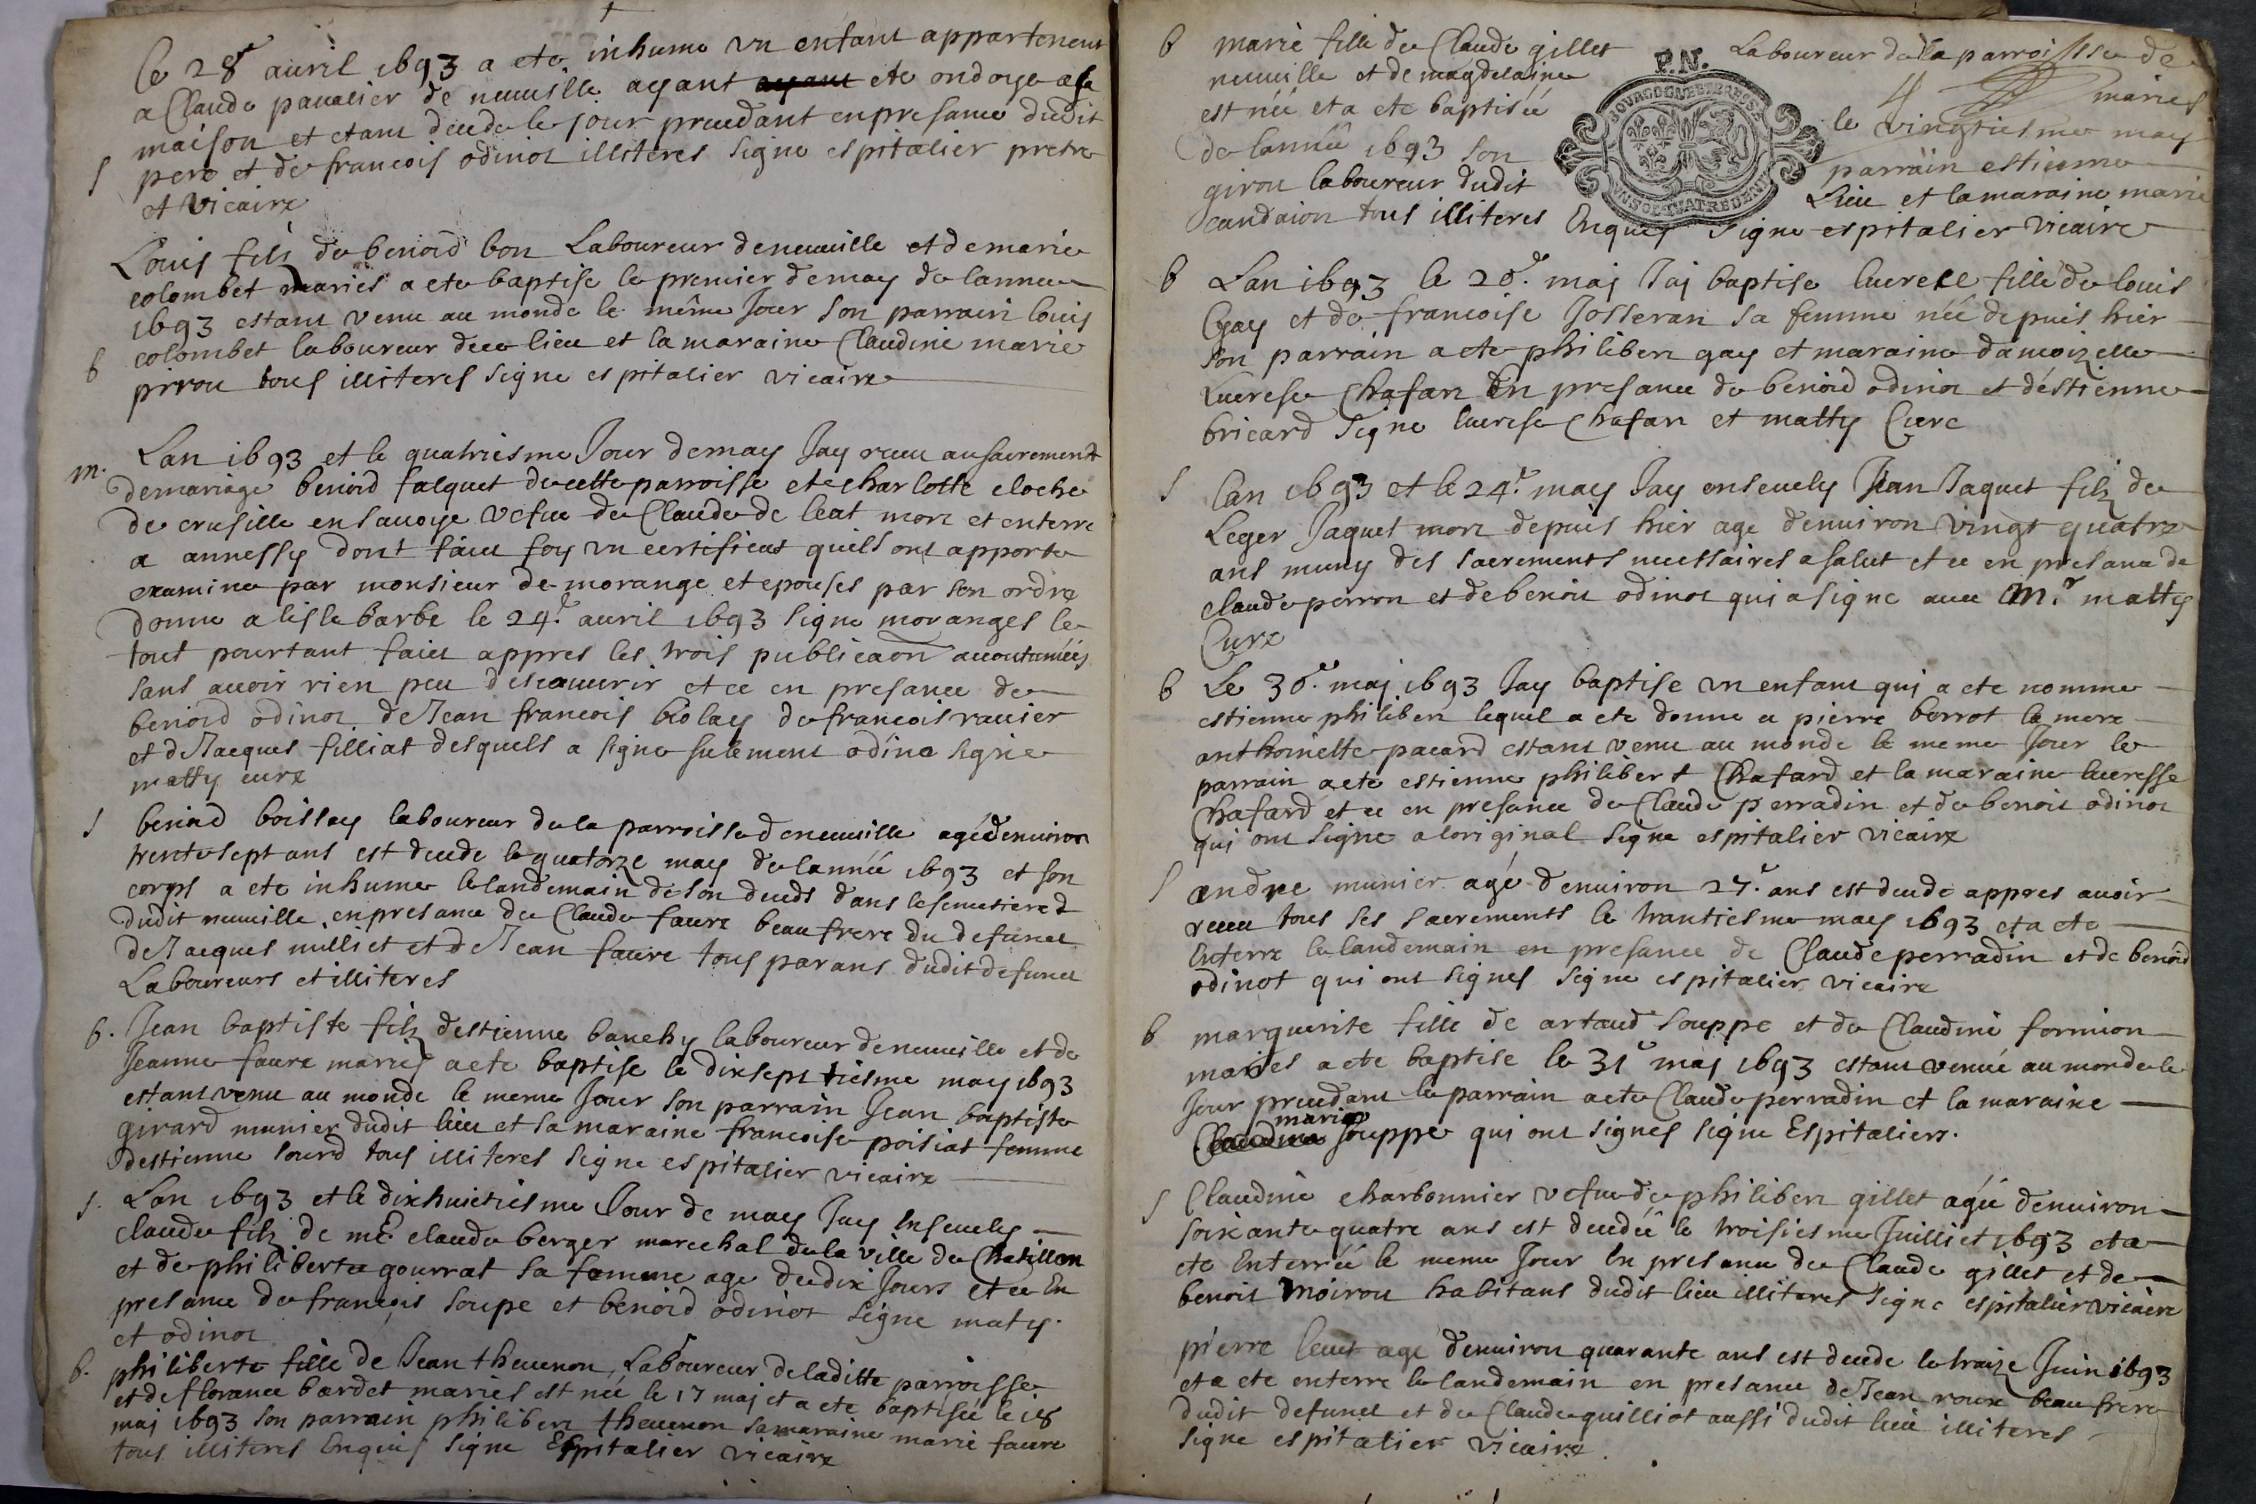 Ce 28e auril 1693 a ete inhume vn enfant appartenent
a Claude paualier de neuuille ayant ayant ete ondoye a sa
maison et etant decede le jour precedant en presance dudit
S pere et de francois odinot illiteres signe espitalier pretre
et vicaire
Louis filz de benoid bon Laboureur de neuuille et de marie
colombet mariés a ete baptise le premier de may de lannee
1693 estant venu au monde le même Jour son parrain louis
B colombet laboureur de ce lieu et la maraine Claudine marie
pirrou tous illiteres signe espitalier vicaire
Lan 1693 et le quatriesme Jour de may Jay receu au sacrement
m. de mariage benoid falquet de cette parroisse et charlotte cloche
de crusille en sauoye vefue de Claude de leat mort et enterre
a annessy dont faict foy vn certificat quils ont apporte
examine par monsieur de morange et epousés par son ordre
donne a lisle barbe le 24e. auril 1693 signe moranges le
tout pourtant faict appres les trois publicaõn accoutumées
sans auoir rien peu descouurir et ce en presance de
benoid odinot de Jean francois biolay de francois rauier
et de Jacques filliat desquels a signe sulement odino signe
matty cure
S benoid boissay laboureur de la parroisse de neuuille agé denuiron
trente sept ans est decede le quatorze may de lannéé 1693 et son
corps a ete inhume le landemain de son deceds dans le semetiere d
dudit neuuille en presance de Claude faure beau frere du defunct
de Jacques milliet et de Jean faure tous parans dudit defunct
Laboureurs et illiteres
B. Jean baptiste filz destienne banchy laboureur de neuuille et de
Jeanne faure mariés a ete baptise le dix sept tiesme may 1693
estant venu au monde le meme Jour son parrain Jean baptiste
girard munier dudit lieu et sa maraine francoise poisiat femme
destienne sourd tous illiteres signe espitalier vicaire
S. Lan 1693 et le dix huictiesme Jour de may Jay enseuely
claude filz de me claude berger marechal de la ville de Chatillon
et de philiberte gourrat sa femme age de dix Jours et ce En
presance de francois soupe et benoid odinot signe maty.
et odinot
B. philiberte fille de Jean theuenon Laboureur de laditte parroisse
et de florance bardet mariés est née le 17 maj et a ete baptisée le 18
maj 1693 son parrain philibert theuenon sa maraine marie faure
tous illiteres Enquis signe Espitalier vicaire
B marie fille de Claude gillet Laboureur de la parroisse de
neuuille et de magdelaine mariés
est néé et a ete baptiséé le vingtiesme may
de lannéé 1693 son parrain estienne
girou laboureur dudit Lieu et la maraine marie
caudaion tous illiteres Enquis signe espitalier vicaire
P.N.
B Lan 1693 le 20e. maj Jaj baptise lucrese fille de louis
Gay et de francoise Josseran sa femme néé depuis hier
son parrain a ete philibert gay et maraine damoizelle
Lucrese Chafan En presance de benoid odinot et déstienne
bricard signe lucrese Chafan et matty Cure
S Lan 1693 et le 24e. may Jay enseuely Jean Jaquet filz de
Leger Jaquet mort depuis hier age denuiron vingt quatre
ans muny des sacrements necessaires a salut et ce en presance de
claude perron et de benoit odinot qui a signe auec Mr. matty
Cure
B Le 30e. maj 1693 Jay baptise vn enfant qui a ete nomme
estienne philibert lequel a ete donne a pierre borrot la mere
anthoinette pacard estant venu au monde le meme Jour le
parrain a ete estienne philibert Chafard et la maraine lucresse
Chafard et ce en presance de Claude perradin et de benoit odinot
qui ont signe a loriginal signe espitalier vicaire
S andre munier agé denuiron 27e. ans est decede appres auoir
receu tous ses sacrements le trantiesme may 1693 et a ete
Enterre le landemain en presance de Claude perradin et de benoid
odinot qui ont signés signe espitalier vicaire
B marguerite fille de artaud souppe et de Claudine formion
mariés a ete baptise le 31e maj 1693 estant venue au monde le
Jour precedant le parrain a ete Claude perradin et la maraine
marie
Claudine souppe qui ont signés signe Espitalier.
S Claudine charbonnier vefue de philibert gillet agéé denuiron
soixante quatre ans est decedéé le troisiesme Juilliet 1693 et a
ete Enterréé le meme Jour En presance de Claude gillet et de
benoit moirou habitans dudit lieu illiteres signe espitalier vicaire
pierre leuet age denuiron quarante ans est decede le traize Juin 1693
et a ete enterre le landemain en presance de Jean roux beau frere
dudit defunct et de Claude quilliot aussi dudit lieu illiteres
signe espitalier vicaire.